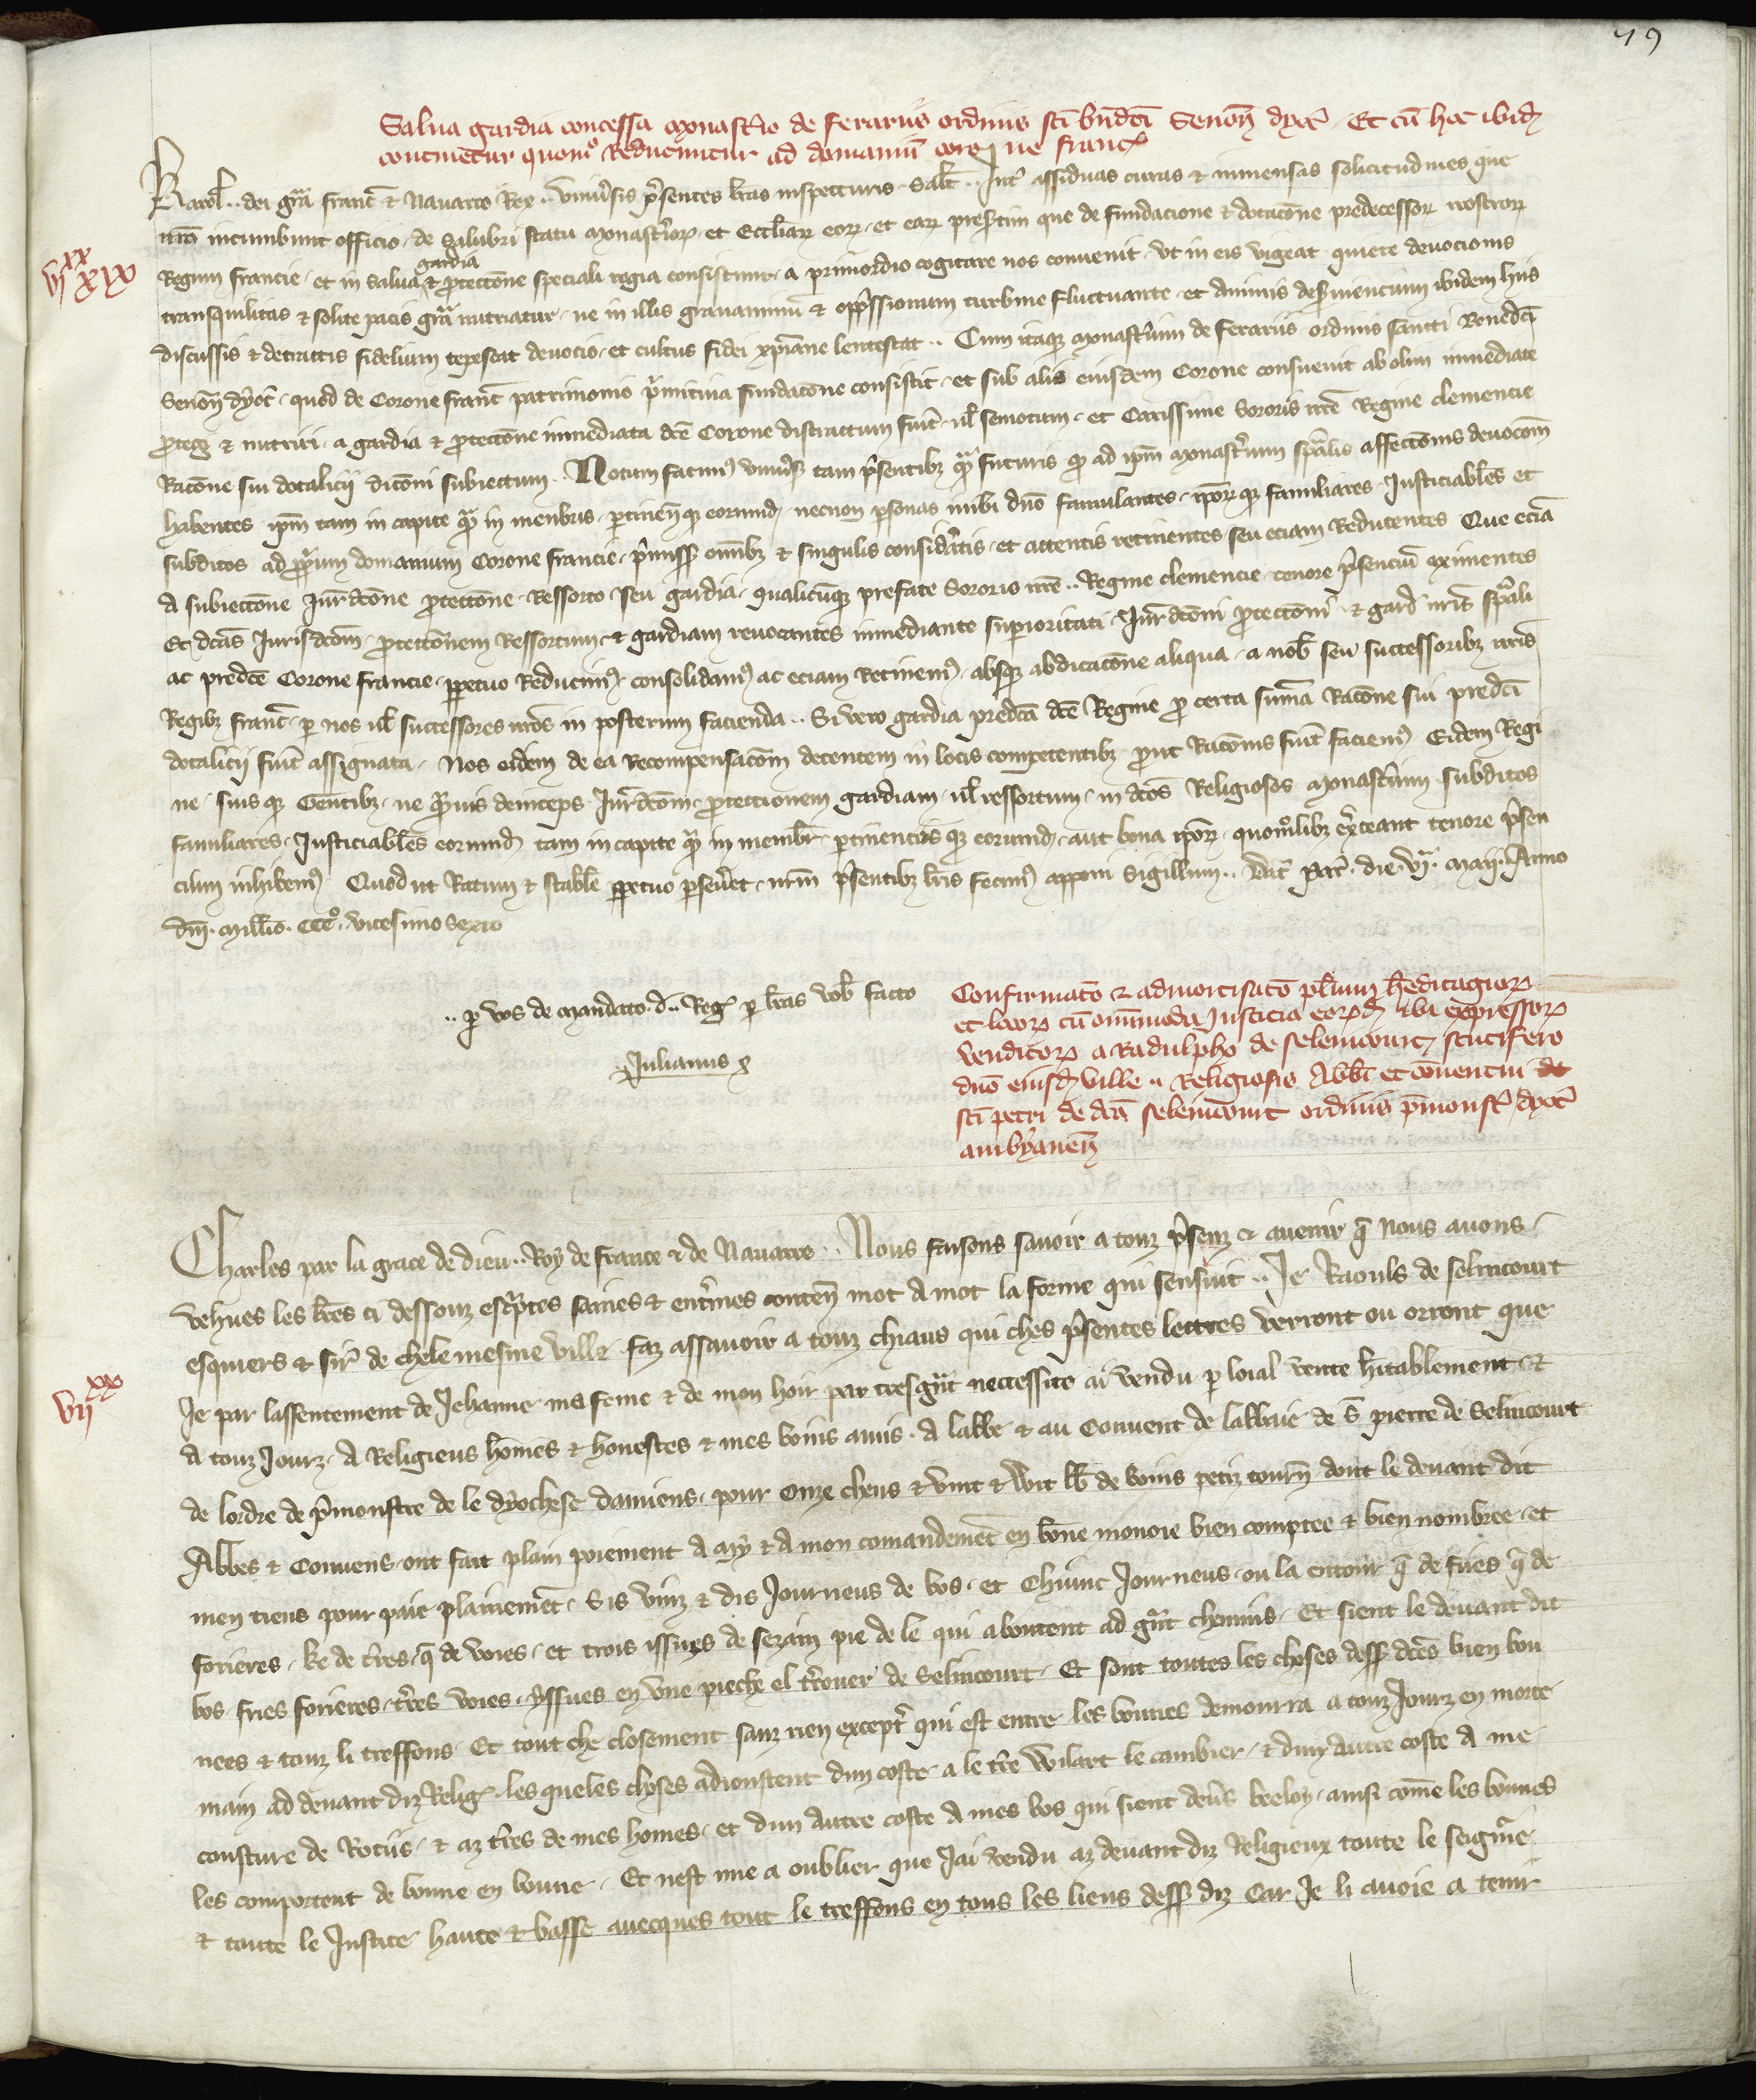 79
Salua gardia concessa monastio de ferariis ordinis sci bndci Senoñ dyoc̃ . Et cũ hoc ibid̃
continetur quomo Reducuntur ad domaniũ corone franc̃
Karol̃ .. dei grã franc̃ & Nauarre Rex .. Vniũsis p̃sentes lr̃as inspecturis . Salt̃ .. Int̃ assiduas curas & inmensas solicitudines que
nr̃o incumbunt officio . de salubri statu monast̃iorꝝ . et Eccl̃iarꝝ eorꝝ . et earꝝ presertim que de fundacione & dotacõne predecessorꝝ nostrorꝝ
vjxx xix
Regum francie . et in salua gardia & ꝓteccõne speciali regia consistunt . a primordio cogitare nos conuenit . vt in eis vigeat quiete deuocionis
transquilitas & solite pacis grã nutriatur . ne in illis grauaminũ & opp̃ssionum turbine fluctuante . et animis des̃uiencium ibidem hiis
discussis & detractis fidelium tepescat deuocio . et cultus fidei xp̃iane lentescat .. Cum itaqꝫ monast̃ium de ferariis ordinis sancti Benedc̃i
Senoñ dyoc̃ . quod de Corone franc̃ patrimonio p̃mitiua fundacõne consistit . et sub alis eiusdem Corone consueuit ab olim inmediate
ꝓtegi & nutriri . a gardia & ꝓteccõne inmediata dc̃e Corone distractum fuĩt . ul̃ semotum . et Carissime Sororis nr̃e Regine clemencie
Racõne sui dotalicii dicõni subiectum . Notum facimꝰ vniũsis tam p̃sentibꝫ q̃m futuris q̃ ad ip̃m monast̃ium sp̃alis affecc̃onis deuocõem
habentes ip̃m tam in capite q̃m in menbris . ꝑtineñ qꝫ eorumdꝫ . necnon ꝑsonas inibi dño famulantes . ip̃orꝝqꝫ familiares . Justiciables et
subditos ad ꝓp̃ium domanium Corone francie . p̃missꝭ omĩbꝫ & singulis considr̃atis . et attentis retinentes seu eciam Reducentes Que eciã
a subieccõne Jur̃dcõne ꝓteccõne . Ressorto seu gardia . qualicũqꝫ prefate Sororis nr̃e .. Regine clemencie . tenore p̃senciũ eximentes
Et dc̃as Jurisdcõm . ꝓteccõnem Ressortum . & gardiam reuocantes inmediante suꝑioritati . Jur̃dcõni ꝓteccõni . & gard̃ nr̃is sp̃ali
ac predc̃e Corone francie . ꝑpetuo Reducimꝰ consolidamꝰ ac eciam Retinemꝰ . absqꝫ abdicacõne aliqua . a nob̃ seu successoribꝫ nr̃is
Regibꝫ franc̃ . ꝑ nos ul̃ successores nr̃os in posterum facienda .. Si vero gardia predc̃a dc̃e Regine ꝓ certa sum̃a Racõne sui predc̃i
dotalicii fuĩt assignata . Nos eidem de ea recompensacõm decentem in locis competentibꝫ . ꝓut Racõnis fuĩt faciemꝰ Eidem Regi
ne . suisqꝫ Gentibꝫ . ne q̃uis deinceps Jur̃dcõm . ꝓteccionem gardiam . ul̃ ressortum . in dc̃os Religiosos monast̃ium subditos
familiares . Justiciables eorumdꝫ tam in capite q̃m in membr̃ . ꝑtinenciisqꝫ eorumdꝫ . aut bona ip̃orꝝ . quom̃libꝫ ex̃ceant tenore p̃sen
cium inhibemꝰ Quod ut Ratum & stabile ꝑpetuo ꝑseũet . nr̃m p̃sentibꝫ lr̃is fecimꝰ apponi Sigillum .. Dat̃ Par̃ . die . vjª . maij . Anno
dñi . mill̃io . CCC̃o . vicesimo sexto
.. ꝑ vos de mandato . d̃ .. Reg̃ ꝑ lr̃as vob̃ facto
Julianus
Confirmatõ & admortisatõ pl̃ium h̃editagiorꝝ
et locorꝝ cũ om̃imoda Justicia eorꝝd̃ ibi expressorꝝ
venditorꝝ a Radulpho de selenicourt scutifero
dño eiusd̃ ville .. Religiosis Abb̃i et conuentui
sci petri de dc̃a selenicourt ordinis p̃monst̃ dyoc̃
ambyaneñ
Charles par la grace de dieu .. Roy de france & de Nauarre .. Nous faisons sauoir a touz p̃senz & auenir q̃ nous auons
vehues les lr̃es ci dessouz esc̃ptes saines & ent̃ines conteñ mot a mot la forme qui sensuit .. Je Raouls de selincourt
esquiers & sir̃ de chele mesme ville . faz assauoir a touz chiaus qui ches p̃sentes lettres verront ou orront que
vijxx
Je par lassentement de Jehanne ma feme & de mon hoir par tresg̃nt neccessite ai vendu ꝑ loial vente h̃itablement &
a touz Jourz . A Religieus hõmes & honestes & mes boins amis . A labbe & au Couuent de labbaie de s̃ pierre de Selincourt
de lordre de p̃monstre de le dyochese damiens . pour onze chens & vint & Wit lb̃ de boins petiz tourñ dont le deuant dit
Abbes & Conuens . ont fait plain poiement A my & A mon comandem̃et en bõne monoie bien comptee & bien nombree . et
men tieng pour paie plainem̃et . Sis vinz & dis Journeus de bos . et Chiunc Journeus . ou la entour q̃ de fries q̃ de
forieres . ke de t̃res . q̃ de voies . et trois issues de sezain pie de le qui aboutent ad g̃nt chemins . Et sient le deuant dit
bos . fries forieres . t̃res voies . yssues en vne pieche el t̃rouer de Selincourt . Et sont toutes les choses dessꝭ dc̃es bien bon
nees & touz li treffons . Et tout che closement sanz rien except̃ qui est entre les bonnes demourra a touz Jourz en morte
main ad deuant diz Relig̃ . les queles choses adioustent dun coste . a le t̃re Wilart le cambier . & dun autre coste A me
cousture de Rotiis . & az t̃res de mes homes . et dun autre coste A mes bos qui sient deũs beeloy . ainsi cõme les bonnes
les comportent de bonne en bonne . Et nest mie a oublier que Jai vendu az deuant diz Religieux toute le seign̂ie
& toute le Justice haute & basse auecques tout le treffons en tous les lieus dessꝭ diz Car Je li auoie a tenir